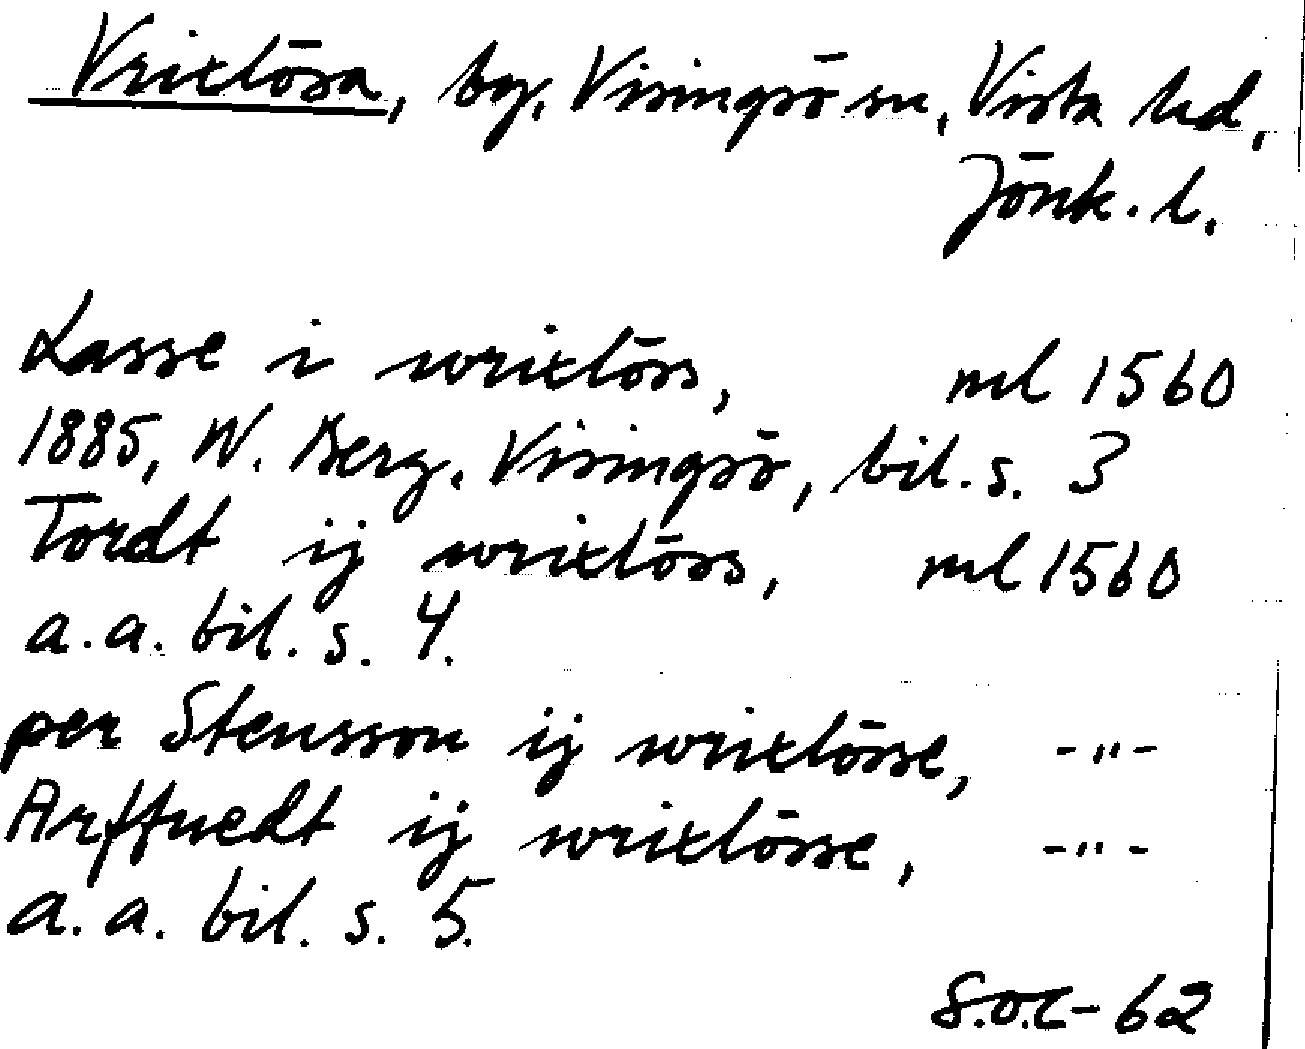 Vrixlösa, by, Visingsö sn, Vista hd,
Jönk. l.
Lasse i wrixlöss, ml 1560
1885, W. Berg, Visingsö, bil. s. 3
Tordt ij wrixlöss, ml 1560
a. a. bil. s. 4.
per Stensson ij wrixlösse, -"-
Arffuedt ij wrixlösse, -"-
a. a. bil. s. 5.
S.O.C-62